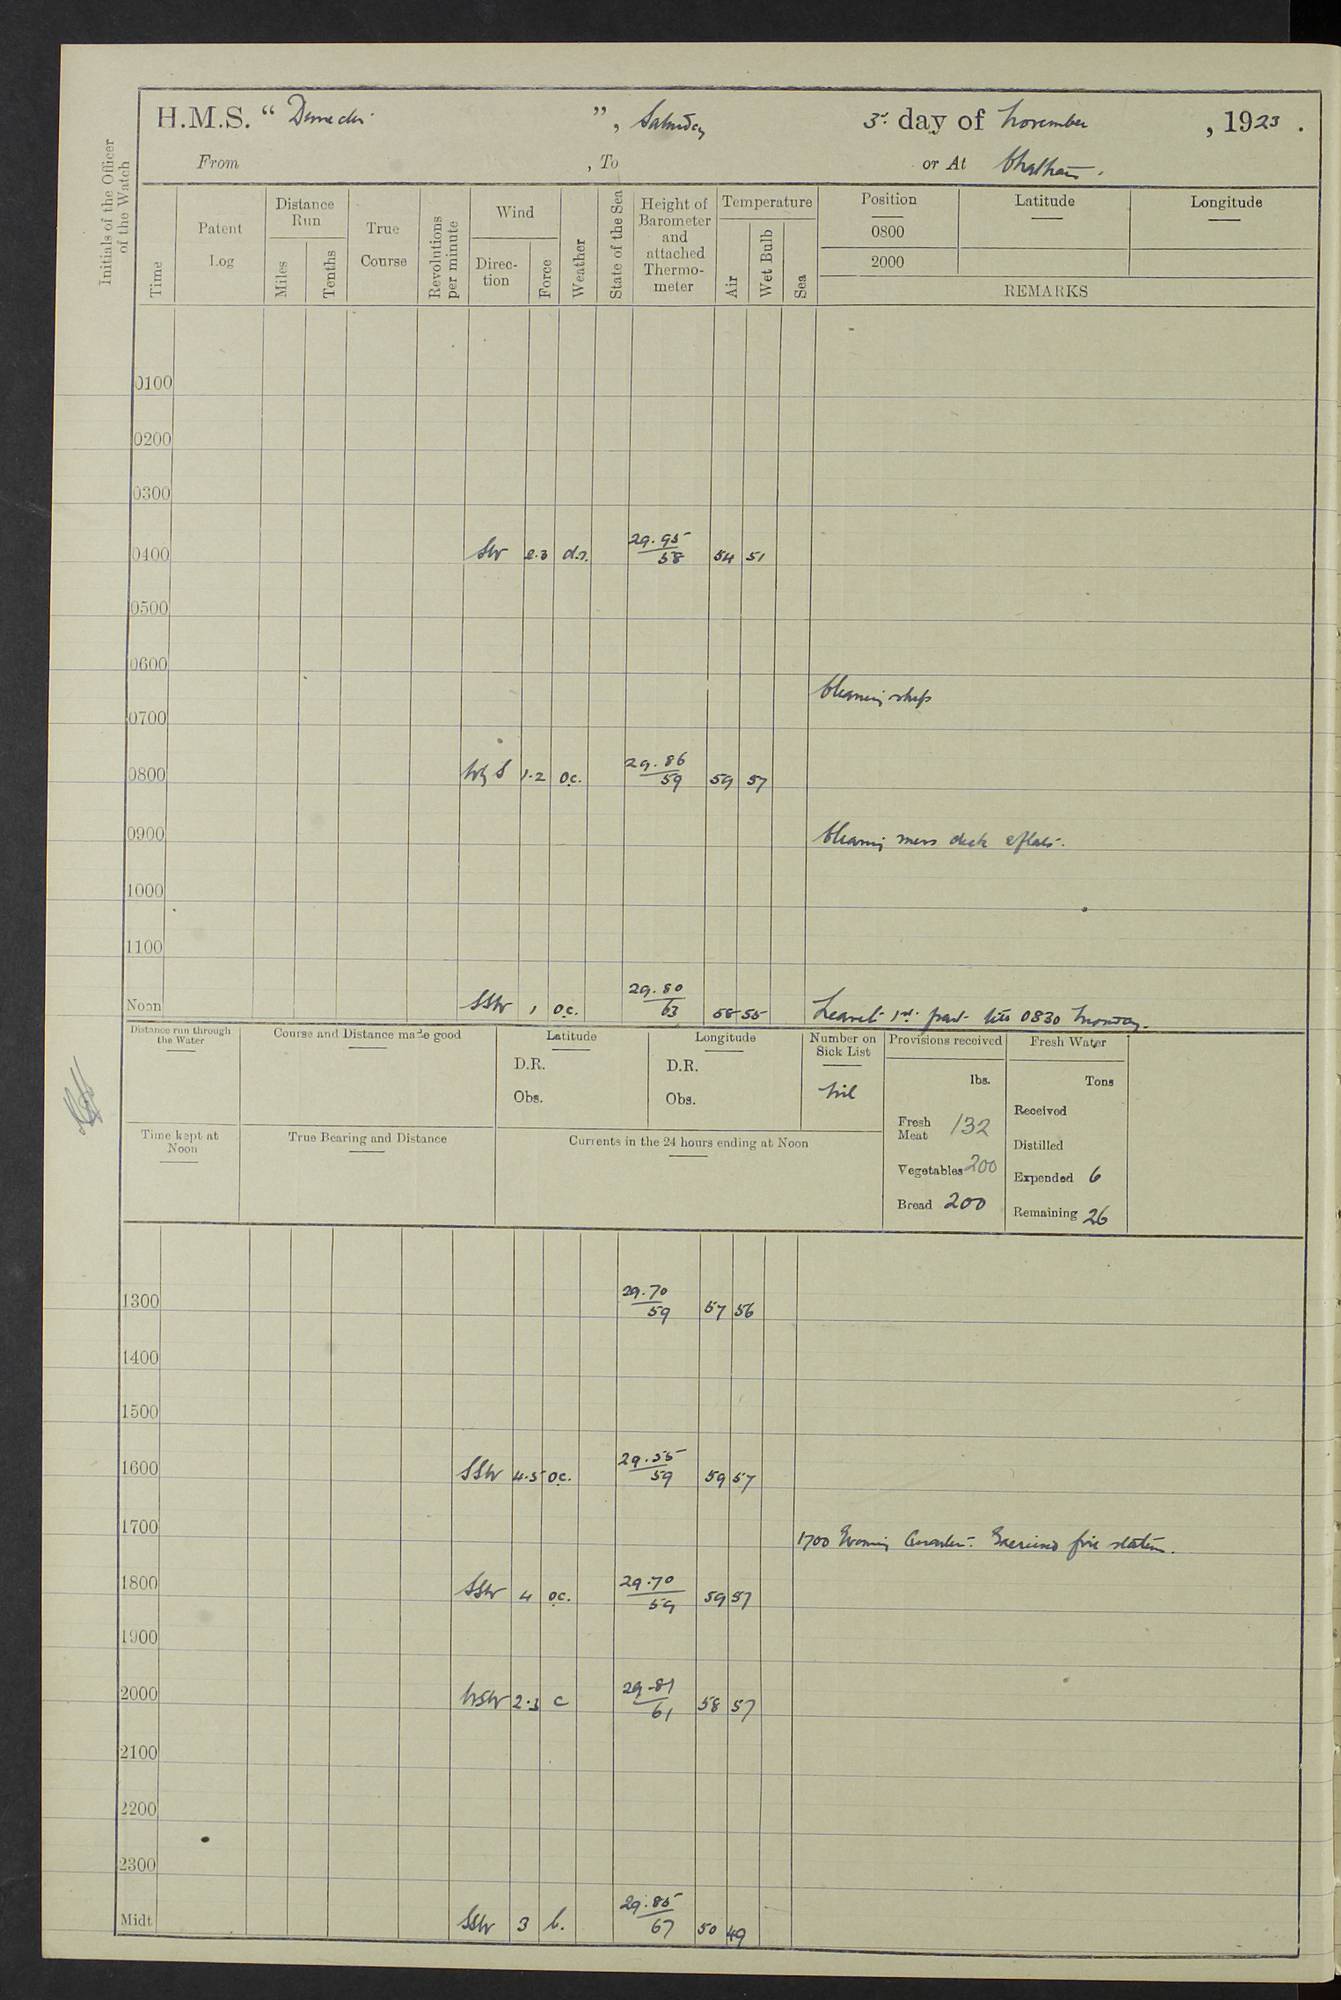 H.M.S. “ ”, Saturday 3rd day of November, 1923.
From , To or At Chatham.
Initials of the Officer of the Watch
Time
Patent Log
Distance Run
Miles
Tenths
True Course
Revolutions per minute
Wind
Direction
Force
Weather
State of the Sea
Height of Barometer and attached Thermometer
Temperature
Air
Wet Bulb
Sea
Position
0800
2000
Latitude
Longitude
REMARKS
0100
0200
0300
0400 SW 2.3 d.r. 29.95/58 54 51
0500
0600
Cleaning ship
0700
0800 W by S 1.2 o.c. 29.86/59 59 57
0900 Cleaning mess deck & flats.
1000
1100
Noon SSW 1 o.c. 29.80/63 58 55 Leave to 1st part till 0830 Monday.
Distance run through the Water
Course and Distance made good
Latitude
D.R.
Obs.
Longitude
D.R.
Obs.
Number on Sick List
Nil
Provisions received
lbs.
Fresh Meat 132
Vegetables 200
Bread 200
Fresh Water
Tons
Received
Distilled
Expended 6
Remaining 26
Time kept at Noon
True Bearing and Distance
Currents in the 24 hours ending at Noon
1300 29.70/59 57 56
1400
1500
1600 SSW 4.5 o.c. 29.55/59 59 57
1700 1700 Evening Quarters. Exercised fire stations.
1800 SSW 4 o.c. 29.70/59 59 57
1900
2000 WSW 2.3 c 29.81/61 58 57
2100
2200
2300
Midt SSW 3 b. 29.85/67 50 49